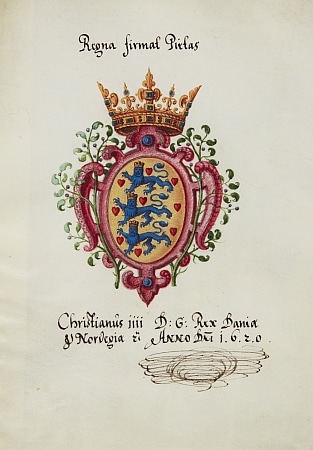 Regna firmat Pietas
Christianus iiii D: G: Rex Dania
& Norvegia rc̄ ANNO Dn̄i 1.6.20.